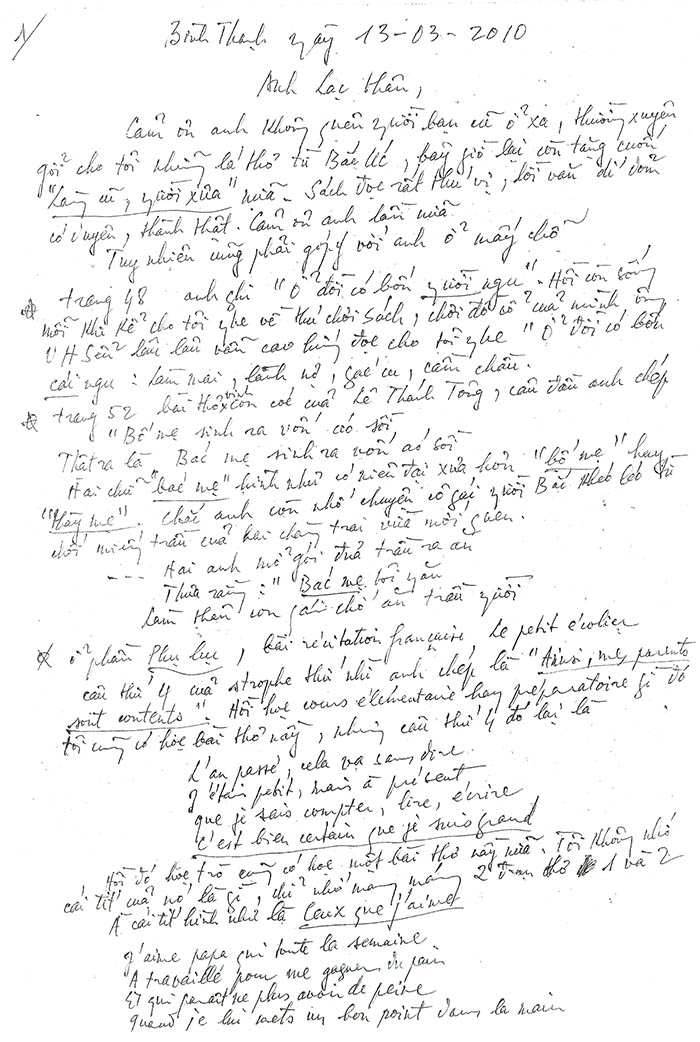 1/
Bình Thạnh ngày 13-03-2010
Anh Lạc Nhân,
Cám ơn anh không quên người bạn cũ ở xa, thường xuyên
gởi cho tôi những lá thơ từ Bắc Úc, bây giờ lại còn tặng cuốn
"Làng cũ, người xưa" nữa. Sách đọc rất thú vị, lối văn dí dỏm
có duyên, thành thật. Cám ơn anh lần nữa
Tuy nhiên cũng phải góp ý với anh ở mấy chỗ
trang 48 anh ghi "Ở đời có bốn người ngu". Hồi còn sống
mỗi khi kể cho tôi nghe về thú chơi sách, chơi đồ cổ của mình ông
VH Sển lâu lâu vẫn cao hứng đọc cho tôi nghe "Ở đời có bốn
cái ngu: làm mai, lãnh nợ, gác cu, cầm chầu.
trang 52 bài thơ vịnh con cóc của Lê Thánh Tông, câu đầu anh chép
"Bố mẹ sinh ra vốn áo sồi
Thật ra là Bác mẹ sinh ra vốn áo sồi
Hai chữ "bác mẹ" hình như có niên đại xưa hơn "bố mẹ" hay
"thầy mẹ". Chắc anh còn nhớ chuyện cô gái người Bắc khéo léo từ
chối miếng trầu của hai chàng trai vừa mới quen.
--- Hai anh mở gói đưa trầu ra ăn
Thưa rằng: "Bác mẹ tôi răn
Làm thân con gái chớ ăn trầu người
ở phần Phụ lục, bài récitation française Le petit écolier
câu thứ 4 của strophe thứ nhì anh chép là "Ainsi, mes parents
sont contents". Hồi học cours élémentaire hay préparatoire gì đó
tôi cũng có học bài thơ này, nhưng câu thứ 4 đó lại là
L'an passé, cela va sans dire
J'étais petit, mais à présent
que je sais compter, lire, écrire
C'est bien certain que je suis grand
Hồi đó học trò cũng có học một bài thơ này nữa. Tôi không nhớ
cái tít của nó là gì, chỉ nhớ mang máng 2 đoạn thơ 1 và 2
À cái tít hình như là Ceux que j'aime
J'aime papa qui toute la semaine
A travaillé pour me gagner du pain
Et qui paraît ne plus avoir de peine
Quand je lui mets un bon point dans la main